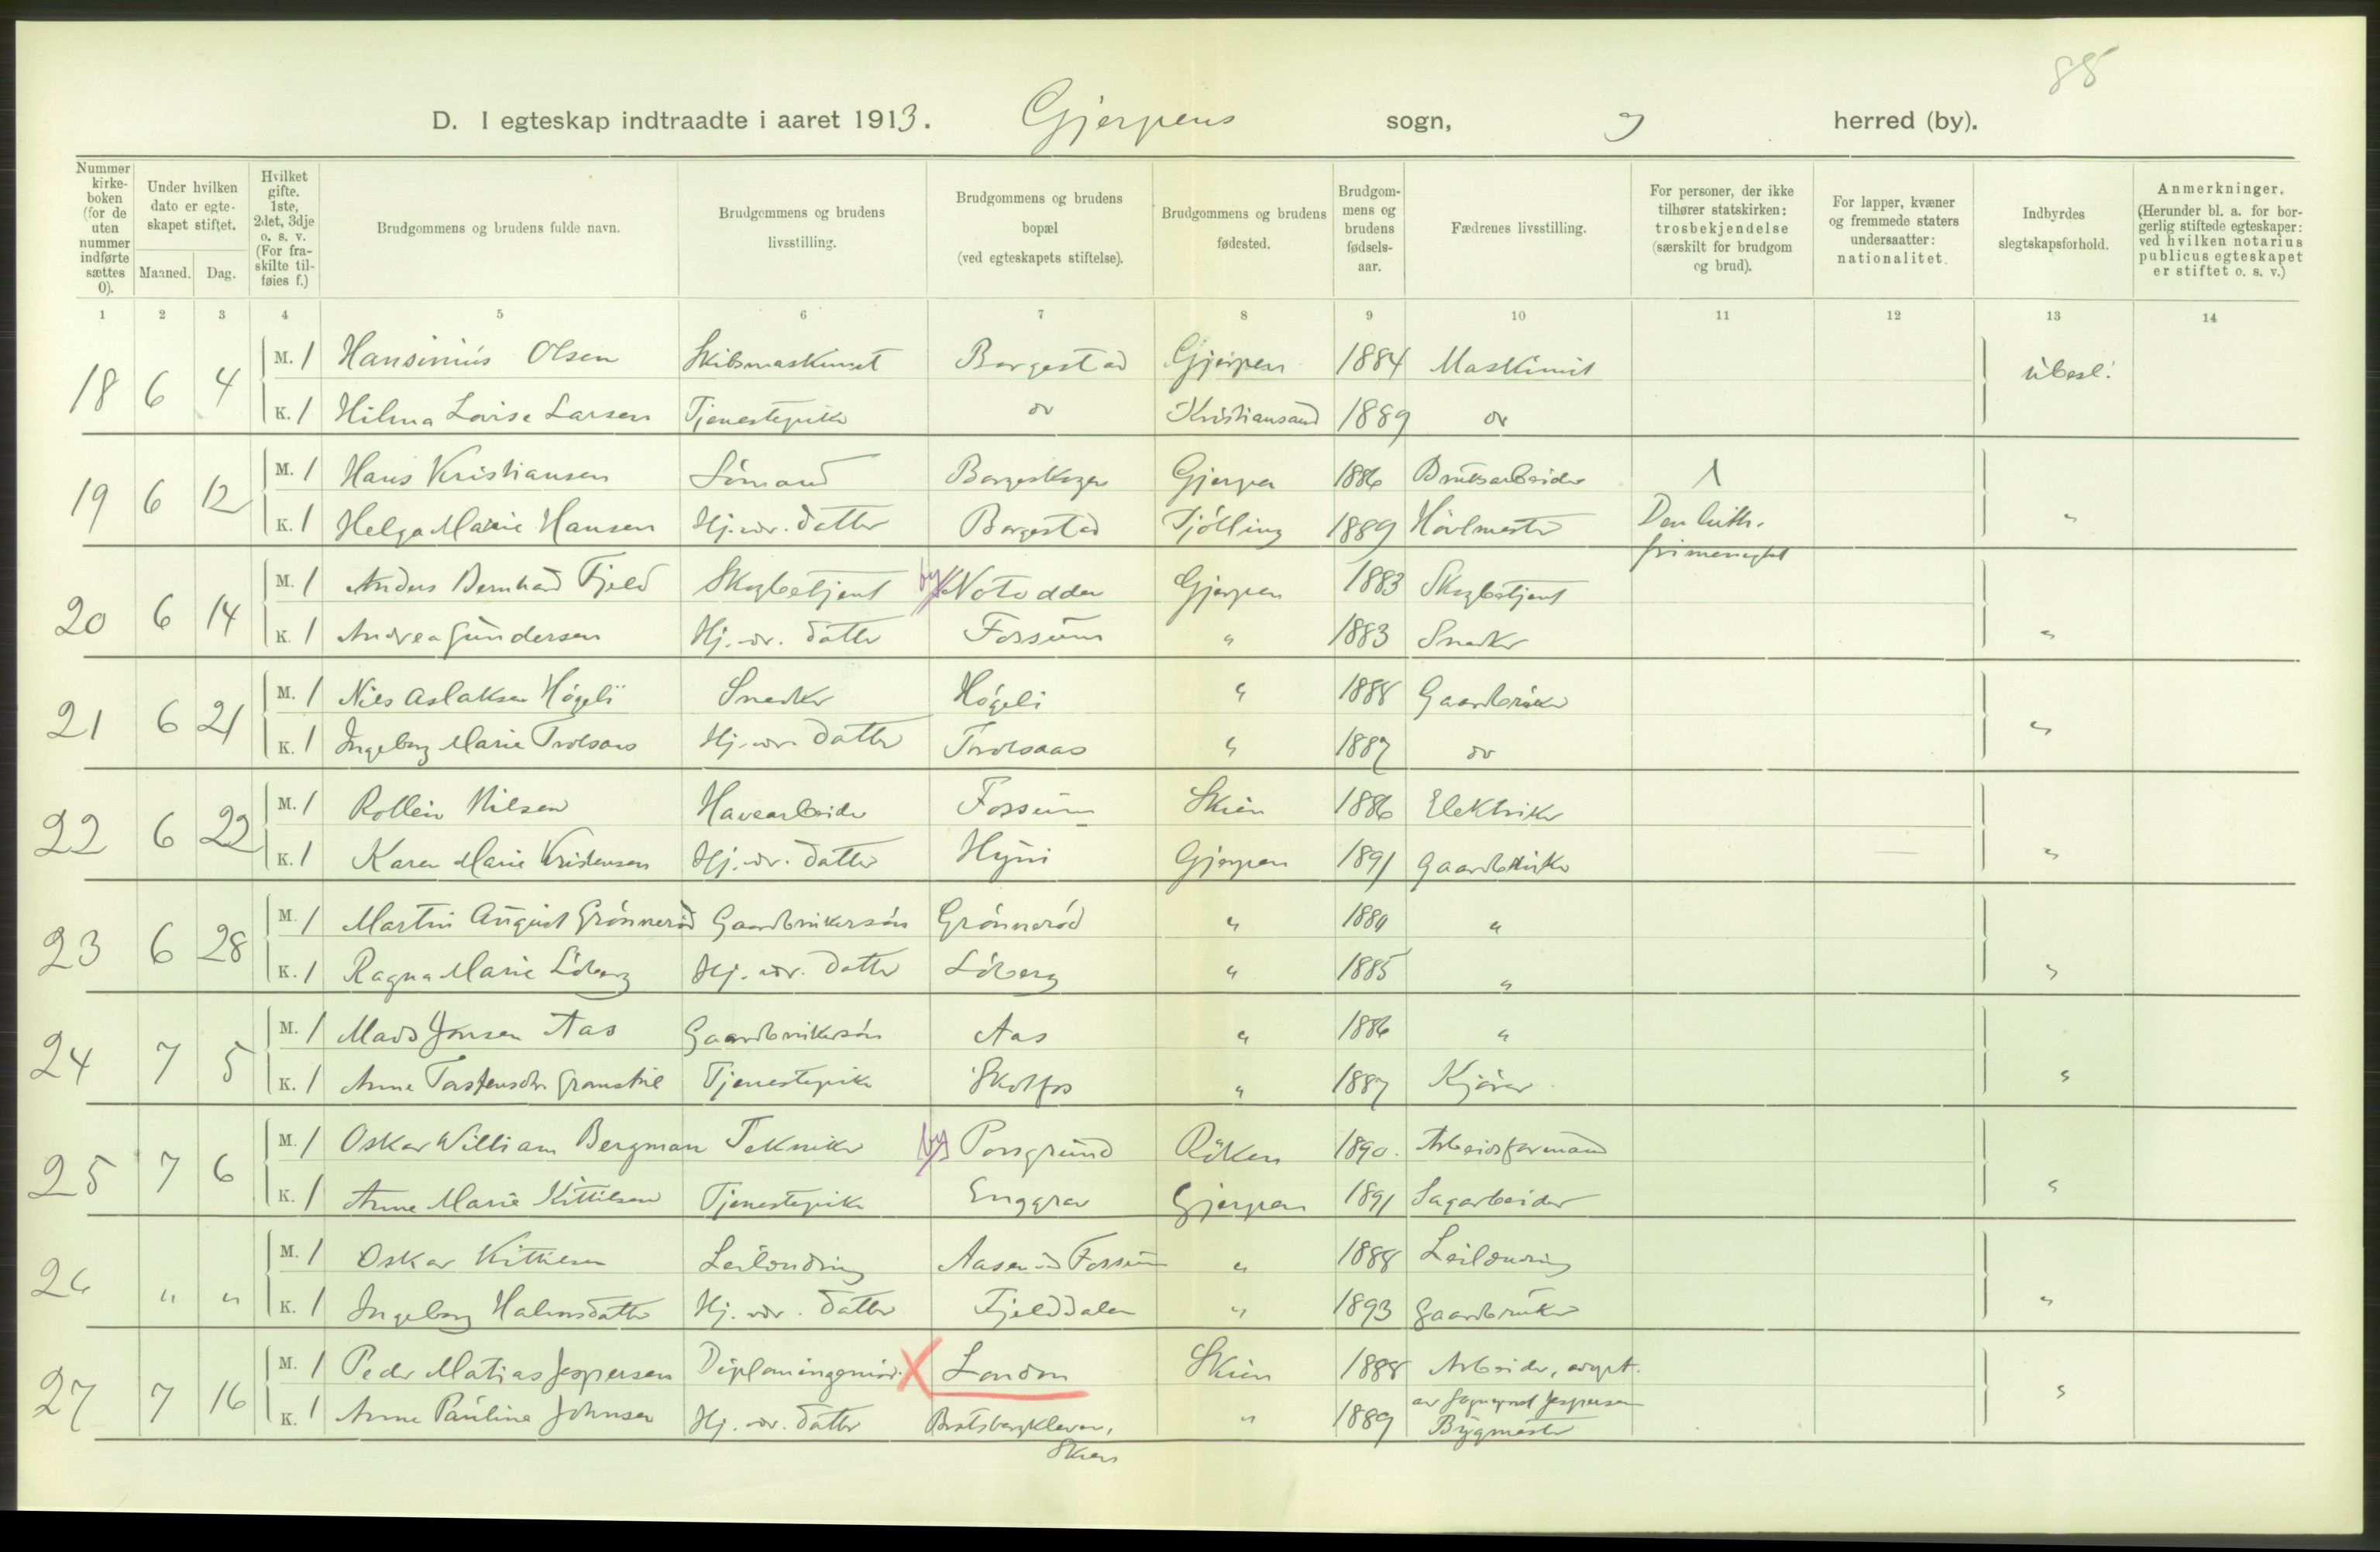 88
D. I egteskap indtraadte i aaret 1913. Gjerpens sogn, herred (by).
Nummer kirkeboken (for de uten nummer indførte sættes 0). Under hvilken dato er egteskapet stiftet. Maaned. Dag. Hvilket gifte. 1ste, 2det, 3dje o. s. v. (For fraskilte tilføies f.) Brudgommens og brudens fulde navn. Brudgommens og brudens livsstilling. Brudgommens og brudens bopæl (ved egteskapets stiftelse). Brudgommens og brudens fødested. Brudgommens og brudens fødselsaar. Fædrenes livsstilling. For personer, der ikke tilhører statskirken: trosbekjendelse (særskilt for brudgom og brud). For lapper, kvæner og fremmede staters undersaatter: nationalitet. Indbyrdes slegtskapsforhold. Anmerkninger. (Herunder bl. a. for borgerlig stiftede egteskaper: ved hvilken notarius publicus egteskapet er stiftet o. s. v.)
1 2 3 4 5 6 7 8 9 10 11 12 13 14
18 6 4 M. 1 Hansinius Olsen Skibsmaskinist Borgestad Gjerpen 1884 Maskinist übesl.
K. 1 Hilma Lovise Larsen Tjenestepike do Kristiansand 1889 do
19 6 12 M. 1 Hans Kristiansen Sömand Borgeskogen Gjerpen 1886 Bruksarbeider 1
K. 1 Helga Marie Hansen Hj. vær. datter Borgestad Tjölling 1889 Hövlmester Den luth. frimenighet "
20 6 14 M. 1 Anders Bernhard Fjeld Skogbetjent by Notodden Gjerpen 1883 Skogbetjent
K. 1 Andrea Gundersen Hj. vær. datter Fossum " 1883 Snedker "
21 6 21 M. 1 Nils Aslaksen Högeli Snedker Högeli " 1888 Gaardbruker
K. 1 Ingeborg Marie Trolsaas Hj. vær. datter Trolsaas " 1887 do "
22 6 22 M. 1 Rollein Nilsen Havearbeider Fossum Skien 1886 Elektriker
K. 1 Karen Marie Kristensen Hj. vær. datter Hyni Gjerpen 1891 Gaardbruker "
23 6 28 M. 1 Martin August Grönneröd Gaardbrukersön Grönneröd " 1889 "
K. 1 Ragna Marie Löberg Hj. vær. datter Löberg " 1885 " "
24 7 5 M. 1 Mads Jonsen Aas Gaardbrukersön Aas " 1886 "
K. 1 Anne Tjenestepike Skotfos " 1887 Kjörer "
25 7 6 M. 1 Oskar William Bergman Tekniker by Porsgrund Röken 1890. Arbeidsformand
K. 1 Anne Marie Kittilsen Tjenestepike Enggrav Gjerpen 1891 Sagarbeider "
26 " " M. 1 Oskar Kittilsen Leilænding Aasen Fossum " 1888 Leilænding
K. 1 Ingeborg Halvorsdatter Hj. vær. datter Fjelddalen " 1893 Gaardbruker "
27 7 16 M. 1 Peder Matias Jespersen Diplomingeniör X London Skien 1888 Arbeider, adopt.
av Jespersen
K. 1 Anne Pauline Johnsen Hj. vær. datter Bratsbergkleven, " 1889 Bygmester "
Skien